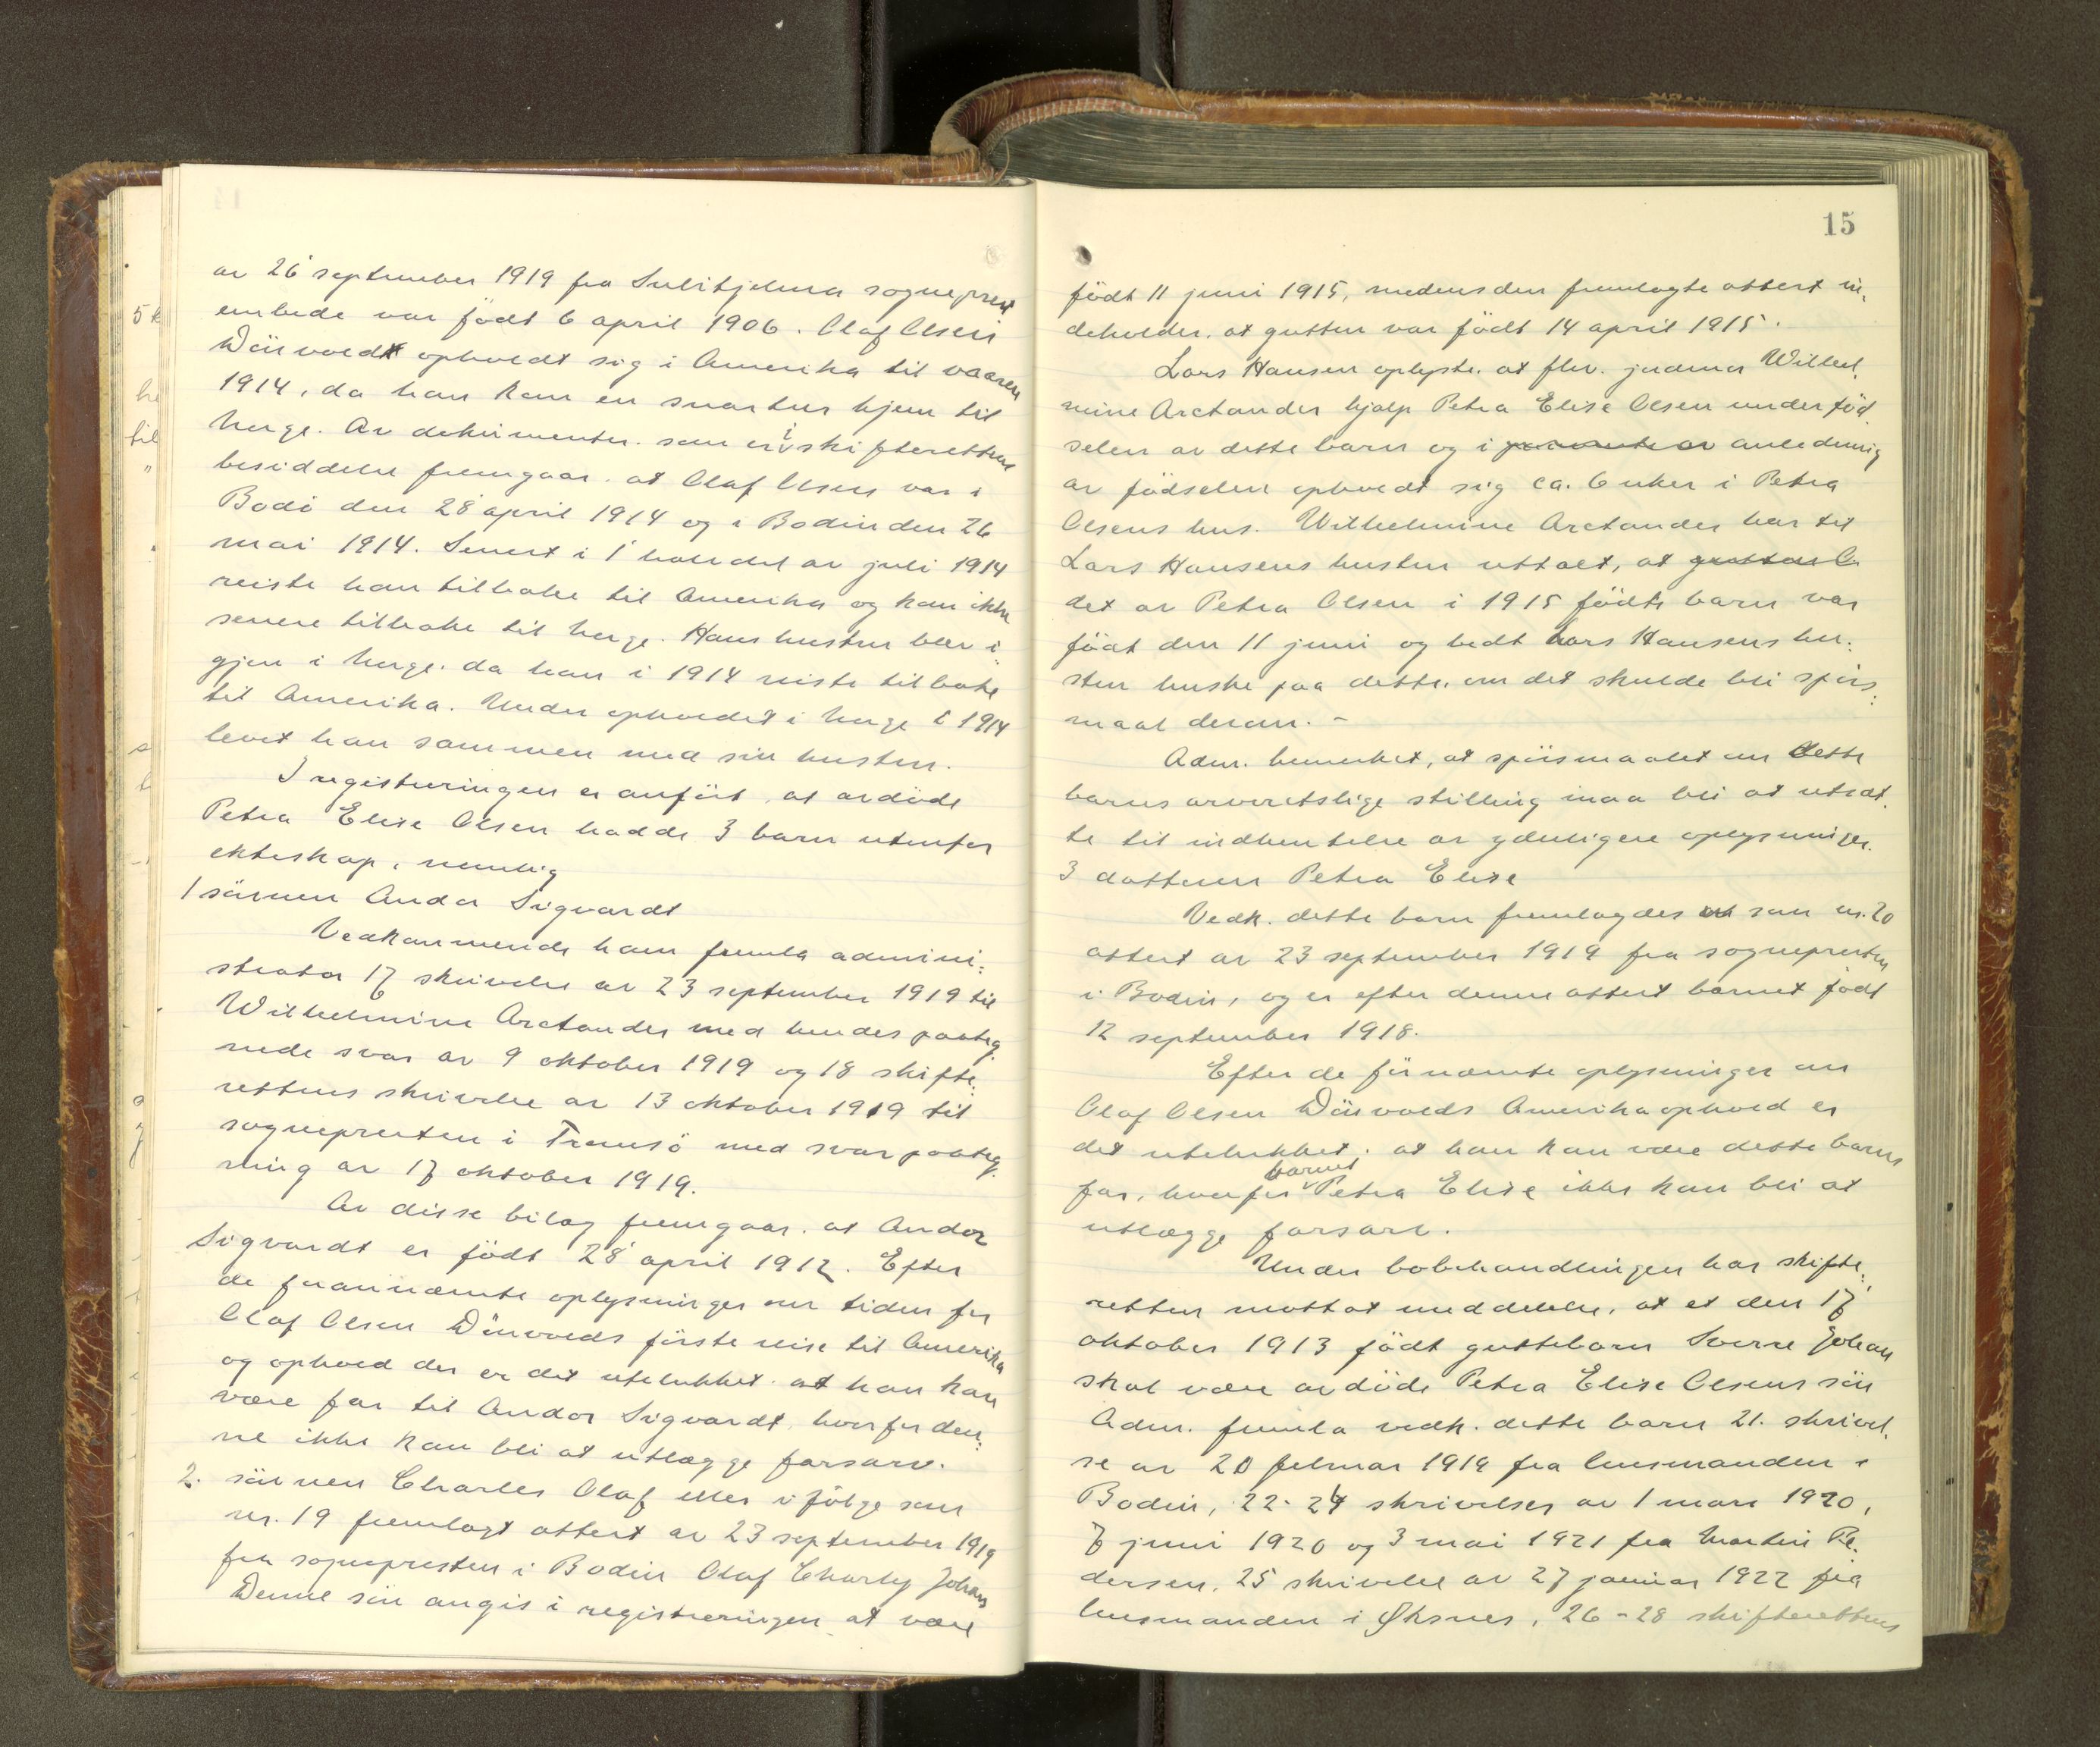 av 26 september 1919 fra Sulitjelma sogneprest
embede var födt 6 april 1906. Olaf Olsen
Dönvold opholdt sig i Amerika til vaaren
1914, da han kom en snartur hjem til
Norge. Av dokumenter. som er i skifterettens
besiddelse fremgaar. at Olaf Olsen var i
Bodö den 28 april 1914 og i Bodin den 26
mai 1914. Senest i 1 halvdel av juli 1914
reiste han tilbake til Amerika og kom ikke
senere tilbake til Norge. Hans hustru blev i-
gjen i Norge. da han i 1914 reiste tilbake
til Amerika. Under opholdet i Norge i 1914
levet han sammen med sin hustru.
I registreringen er anfört, at avdöde
Petra Elise Olsen hadde 3 barn utenfor
ekteskap, nemlig
1 sönnen Andor Sigvardt
Vedkommende ham fremla admini-
strator 17 skrivelse av 23 september 1919 til
Wilhelmine Arctander med hendes paateg
nede svar av 9 oktober 1919 og 18 skifte-
rettens skrivelse av 13 oktober 1919 til
sognepresten i Tromsö med svar paateg-
ning av 17 oktober 1919.
Av disse bilag fremgaar. at Andor
Sigvardt er födt 28 april 1912. Efter
de forannævnte oplysninger om tiden for
Olaf Olsen Dönvolds förste reise til Amerika
og ophold der er det utelukket. at han kan
være far til Andor Sigvardt, hvorfor den-
ne ikke kan bli at utlægge farsarv.
2. sönnen Charles Olaf eller i fölge som
nr. 19 fremlagt attest av 23 september 1919
fra sognepresten i Bodin Olaf Charly Johans
Denne sön angis i registreringen at være
15
födt 11 juni 1915, medens den fremlagte attest in-
deholder. at gutten var födt 14 april 1915.
Lars Hansen oplyste. at fhv. jordmor Wilhel-
mine Arctander hjalp Petra Elise Olsen under föd-
selen av dette barn og i anledning
av födselen opholdt sig ca. 6 uker i Petra
Olsens hus. Wilhelmine Arctander har til
Lars Hansens hustru uttalt, at
det av Petra Olsen i 1915 födte barn var
födt den 11 juni og bedt Lars Hansens hu-
stru huske paa dette. om det skulde bli spörs-
maal derom. -
Adm. bemerket, at spörsmaalet om dette
barns arveretslige stilling maa bli at utsæt-
te til indhentelse av yderligere oplysninger.
3 datteren Petra Elise
Vedk. dette barn fremlagdes som nr. 20
attest av 23 september 1919 fra sognepresten
i Bodin, og er efter denne attest barnet födt
12 september 1918.
Efter de förnævnte oplysninger om
Olaf Olsen Dönvolds Amerikaophold er
det utelukket. at han kan være dette barns
far, hvorfor barnet Petra Elise ikke kan bli at
utlægge farsarv.
Under bobehandlingen har skifte-
retten mottat meddelelse, at et den 17
oktober 1913 födt guttebarn Sverre Johan
skal være avdöde Petra Elise Olsens sön
Adm. fremla vedk. dette barn 21. skrivel-
se av 20 februar 1919 fra lensmanden i
Bodin, 22-24 skrivelser av 1 mars 1920,
7 juni 1920 og 3 mai 1921 fra Martin Pe-
dersen, 25 skrivelse av 27 januar 1922 fra
lensmanden i Øksnes, 26-28 skifterettens